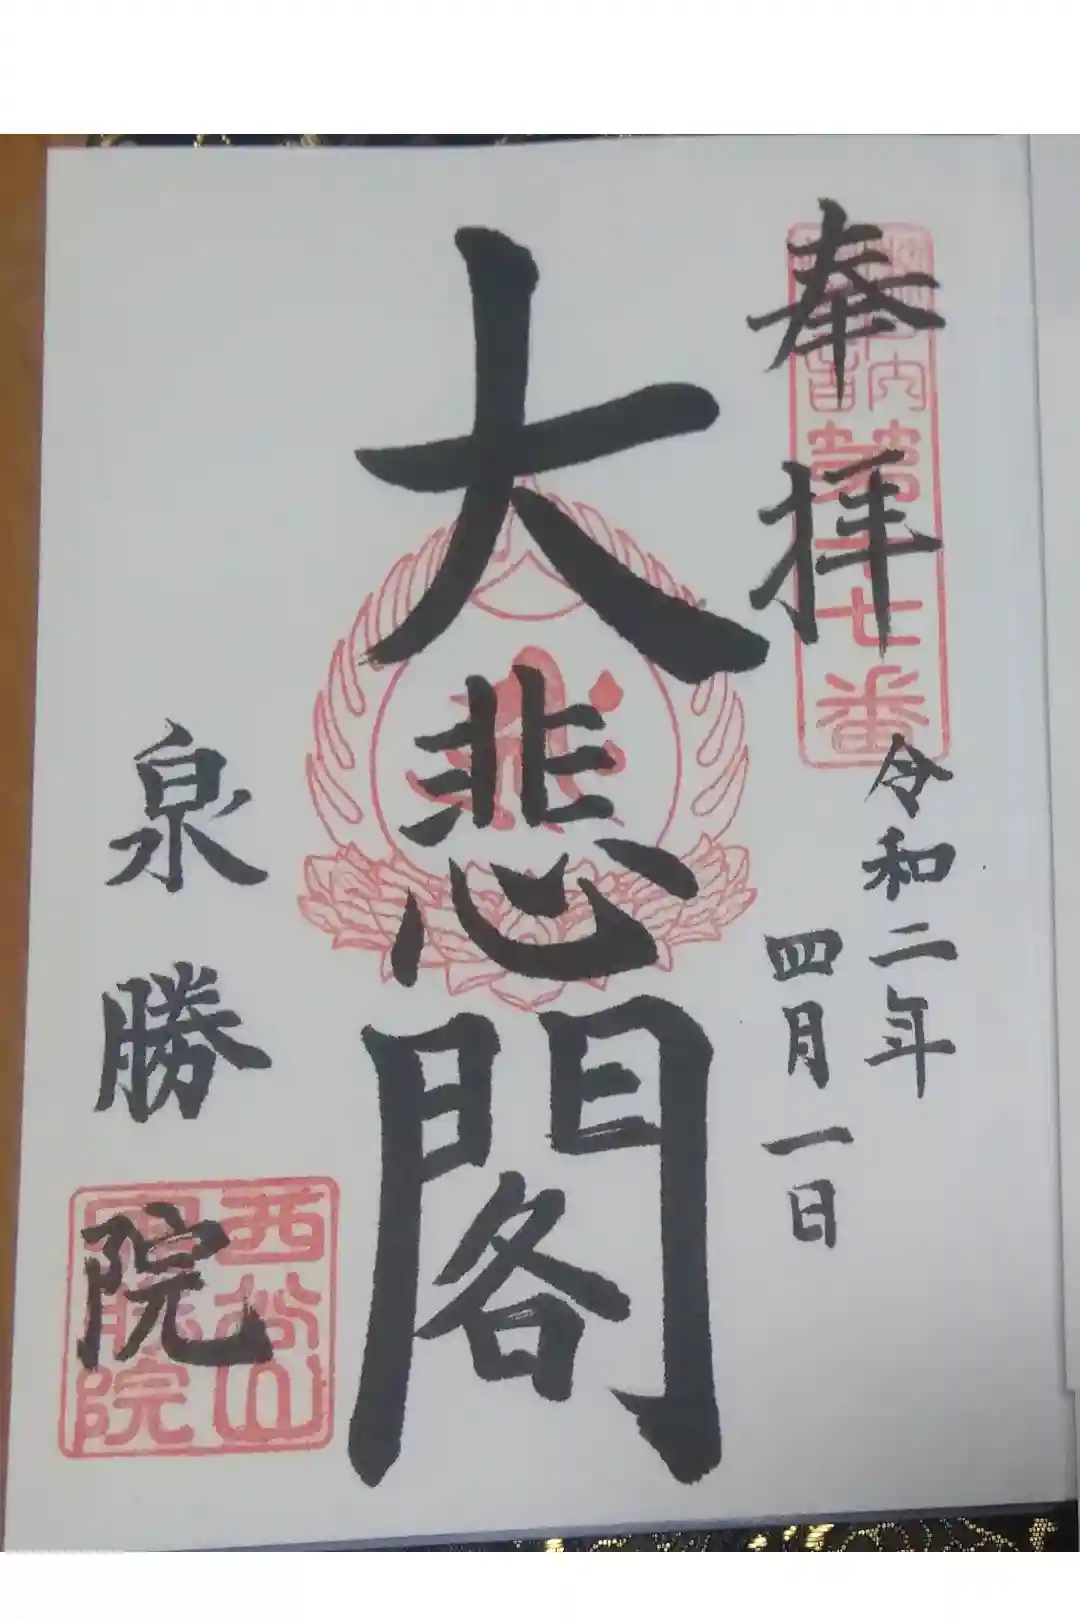 奉拝
令和二年
四月一日
大悲閣
泉勝院
第十七番
西谷山
泉勝院